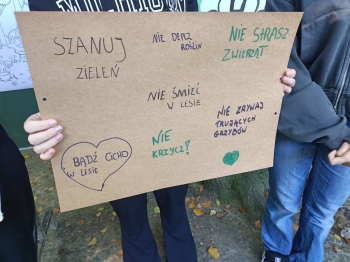 SZANUJ
ZIELEŃ
NIE DEPCZ
ROŚLIN
NIE STRASZ
ZWIERZĄT
NIE ŚMIEĆ
W LESIE
NIE ZRYWAJ
TRUJĄCYCH
GRZYBÓW
BĄDŹ CICHO
W LESIE
NIE
KRZYCZ!